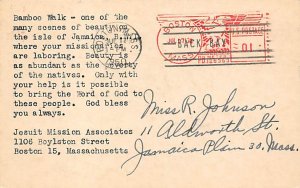 Bamboo Walk - one of the
many scenes of beauty on
the isle of Jamaica, B.W.I.
where your missionaries
are laboring. Beauty is
as abundant as the poverty
of the natives. Only with
your help is it possible
to bring the Word of God to
these people. God bless
you always.
Josuit Mission Associates
1106 Boylston Street
Boston 15, Massachusetts
BOSTON
BACK BAY
.01
MASS.
Miss R. Johnson
11 Aldworth St.
Jamaica Plain 30, Mass.